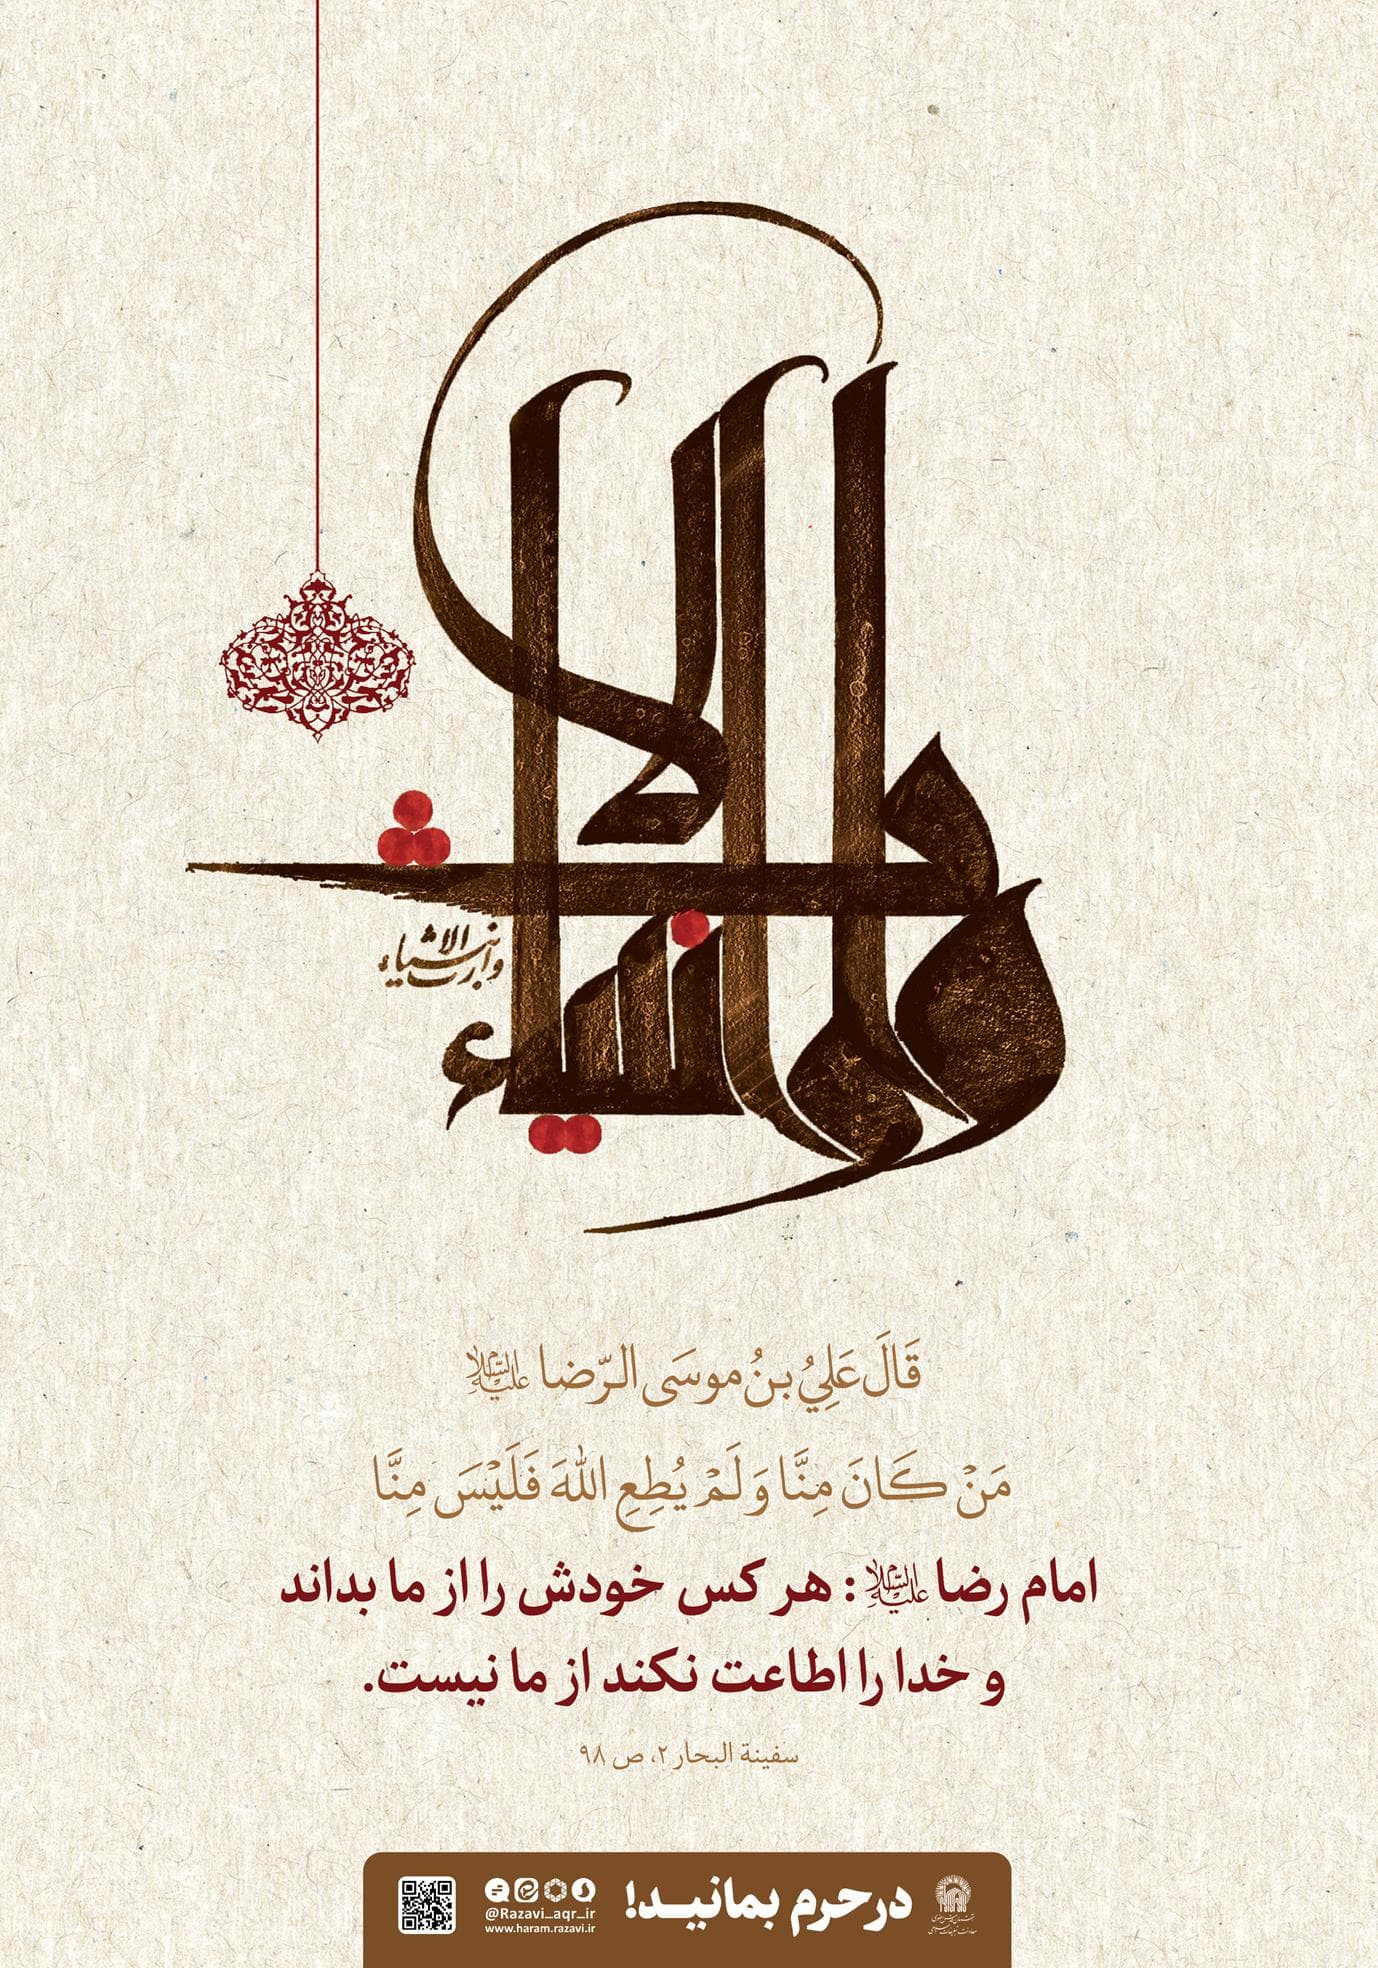 وارث الانبیاء
وارث الانبیاء
قَالَ عَلِيُ بنُ موسَى الرّضا علیه السلام
مَنْ كَانَ مِنَّا وَ لَمْ يُطِعِ اللهَ فَلَيْسَ مِنَّا
امام رضا علیه السلام : هر کس خودش را از ما بداند
و خدا را اطاعت نکند از ما نیست.
سفینة البحار ۲، ص ۹۸
در حرم بمانید!
@Razavi_aqr_ir
www.haram.razavi.ir
آستان قدس رضوی
معاونت تبلیغات اسلامی